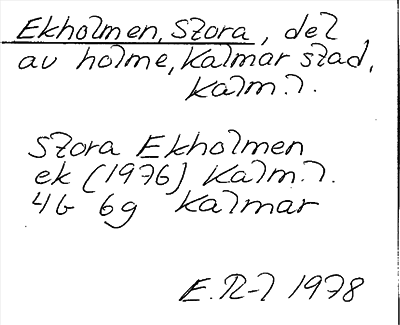 Ekholmen, Stora, del
av holme, Kalmar stad,
Kalm.l.
Stora Ekholmen
ek (1976) Kalm.l.
4G 6g Kalmar
E.R-l 1978